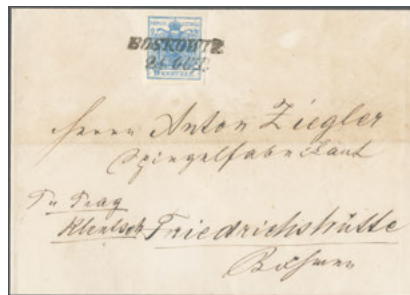 BOSKOWITZ
24. OCT.
Herrn Anton Ziegler
Spiegelfabrikant
Friedrichshütte
Böhmen